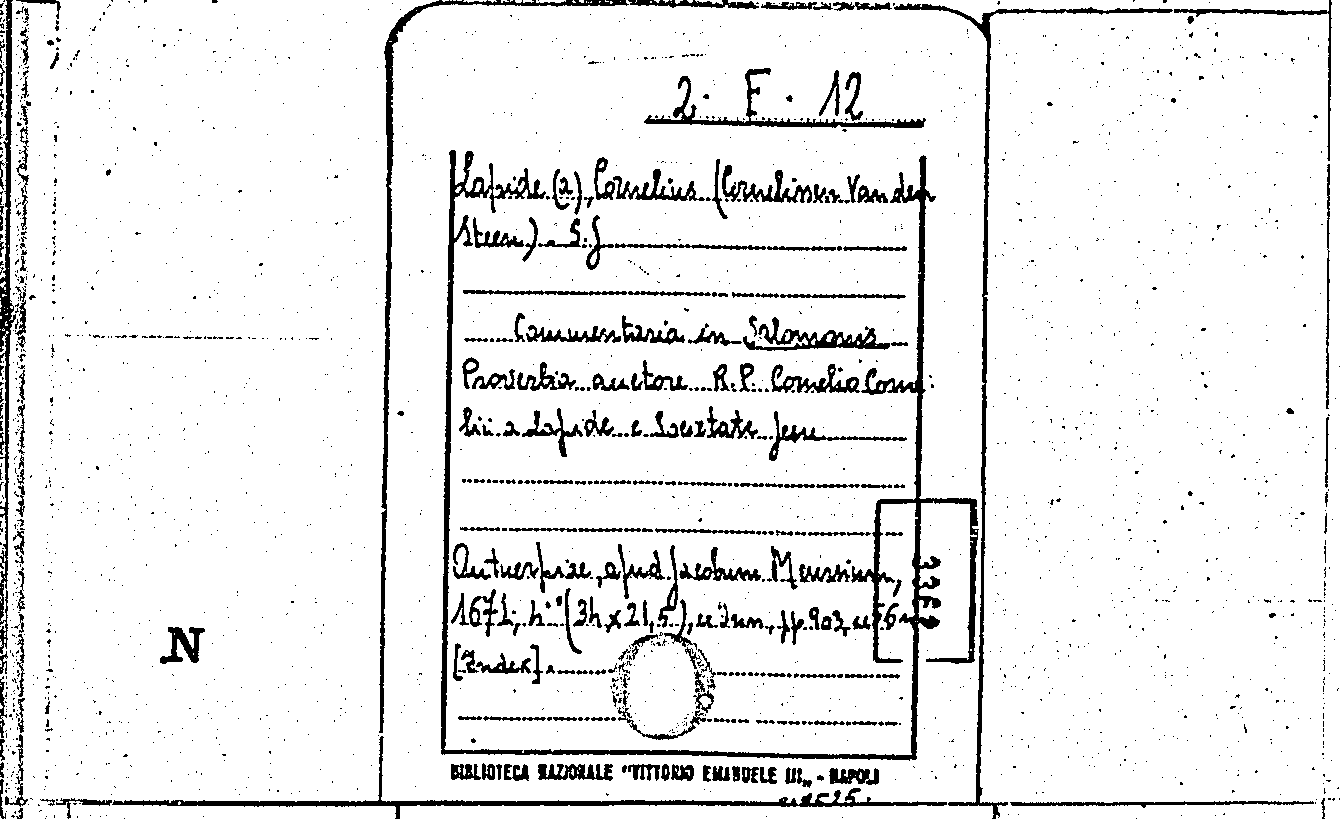 2. F. 12
Lapide (a), Cornelius (Cornelissen Van den
Steen). S.J
Commentaria in Salomonis
Proverbia auctore R.P. Cornelio Corne:
lii a Lapide e Societate Jesu
Antuerpiae, apud Jacobum Meursium,
1671, h° (34 x 21,5), cc 2nn., pp. 903, cc
[Index].
N
BIBLIOTECA NAZIONALE "VITTORIO EMANUELE III„ - NAPOLI